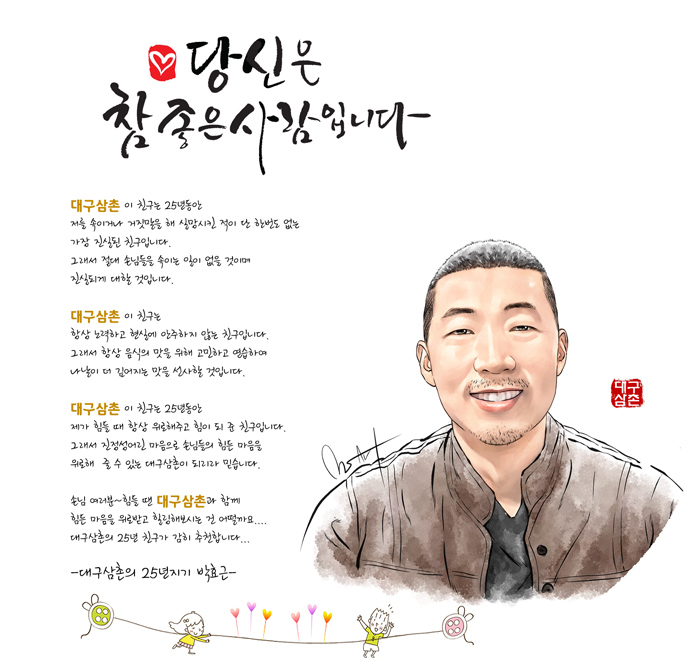 당신은
참 좋은 사람입니다
대구삼촌 이 친구는 25년동안
저를 속이거나 거짓말을 해 실망시킨 적이 단 한번도 없는
가장 진실된 친구입니다.
그래서 절대 손님들을 속이는 일이 없을 것이며
진실되게 대할 것입니다.
대구삼촌 이 친구는
항상 노력하고 현실에 안주하지 않는 친구입니다.
그래서 항상 음식의 맛을 위해 고민하고 연습하여
나날이 더 깊어지는 맛을 선사할 것입니다.
대구삼촌 이 친구는 25년동안
제가 힘들 때 항상 위로해주고 힘이 되 준 친구입니다.
그래서 진정성어린 마음으로 손님들의 힘든 마음을
위로해 줄 수 있는 대구삼촌이 되리라 믿습니다.
손님 여러분~힘들 땐 대구삼촌과 함께
힘든 마음을 위로받고 힐링해보시는 건 어떨까요....
대구삼촌의 25년 친구가 감히 추천합니다...
-대구삼촌의 25년지기 박효근-
대구
삼촌